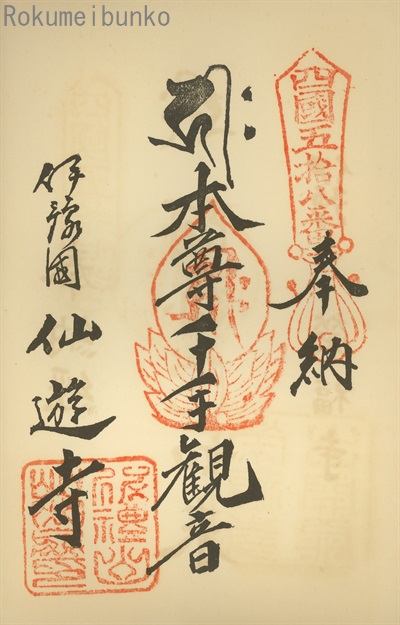 Rokumeibunko
四國五拾八番
奉納
本尊千手観音
伊豫國
仙遊寺